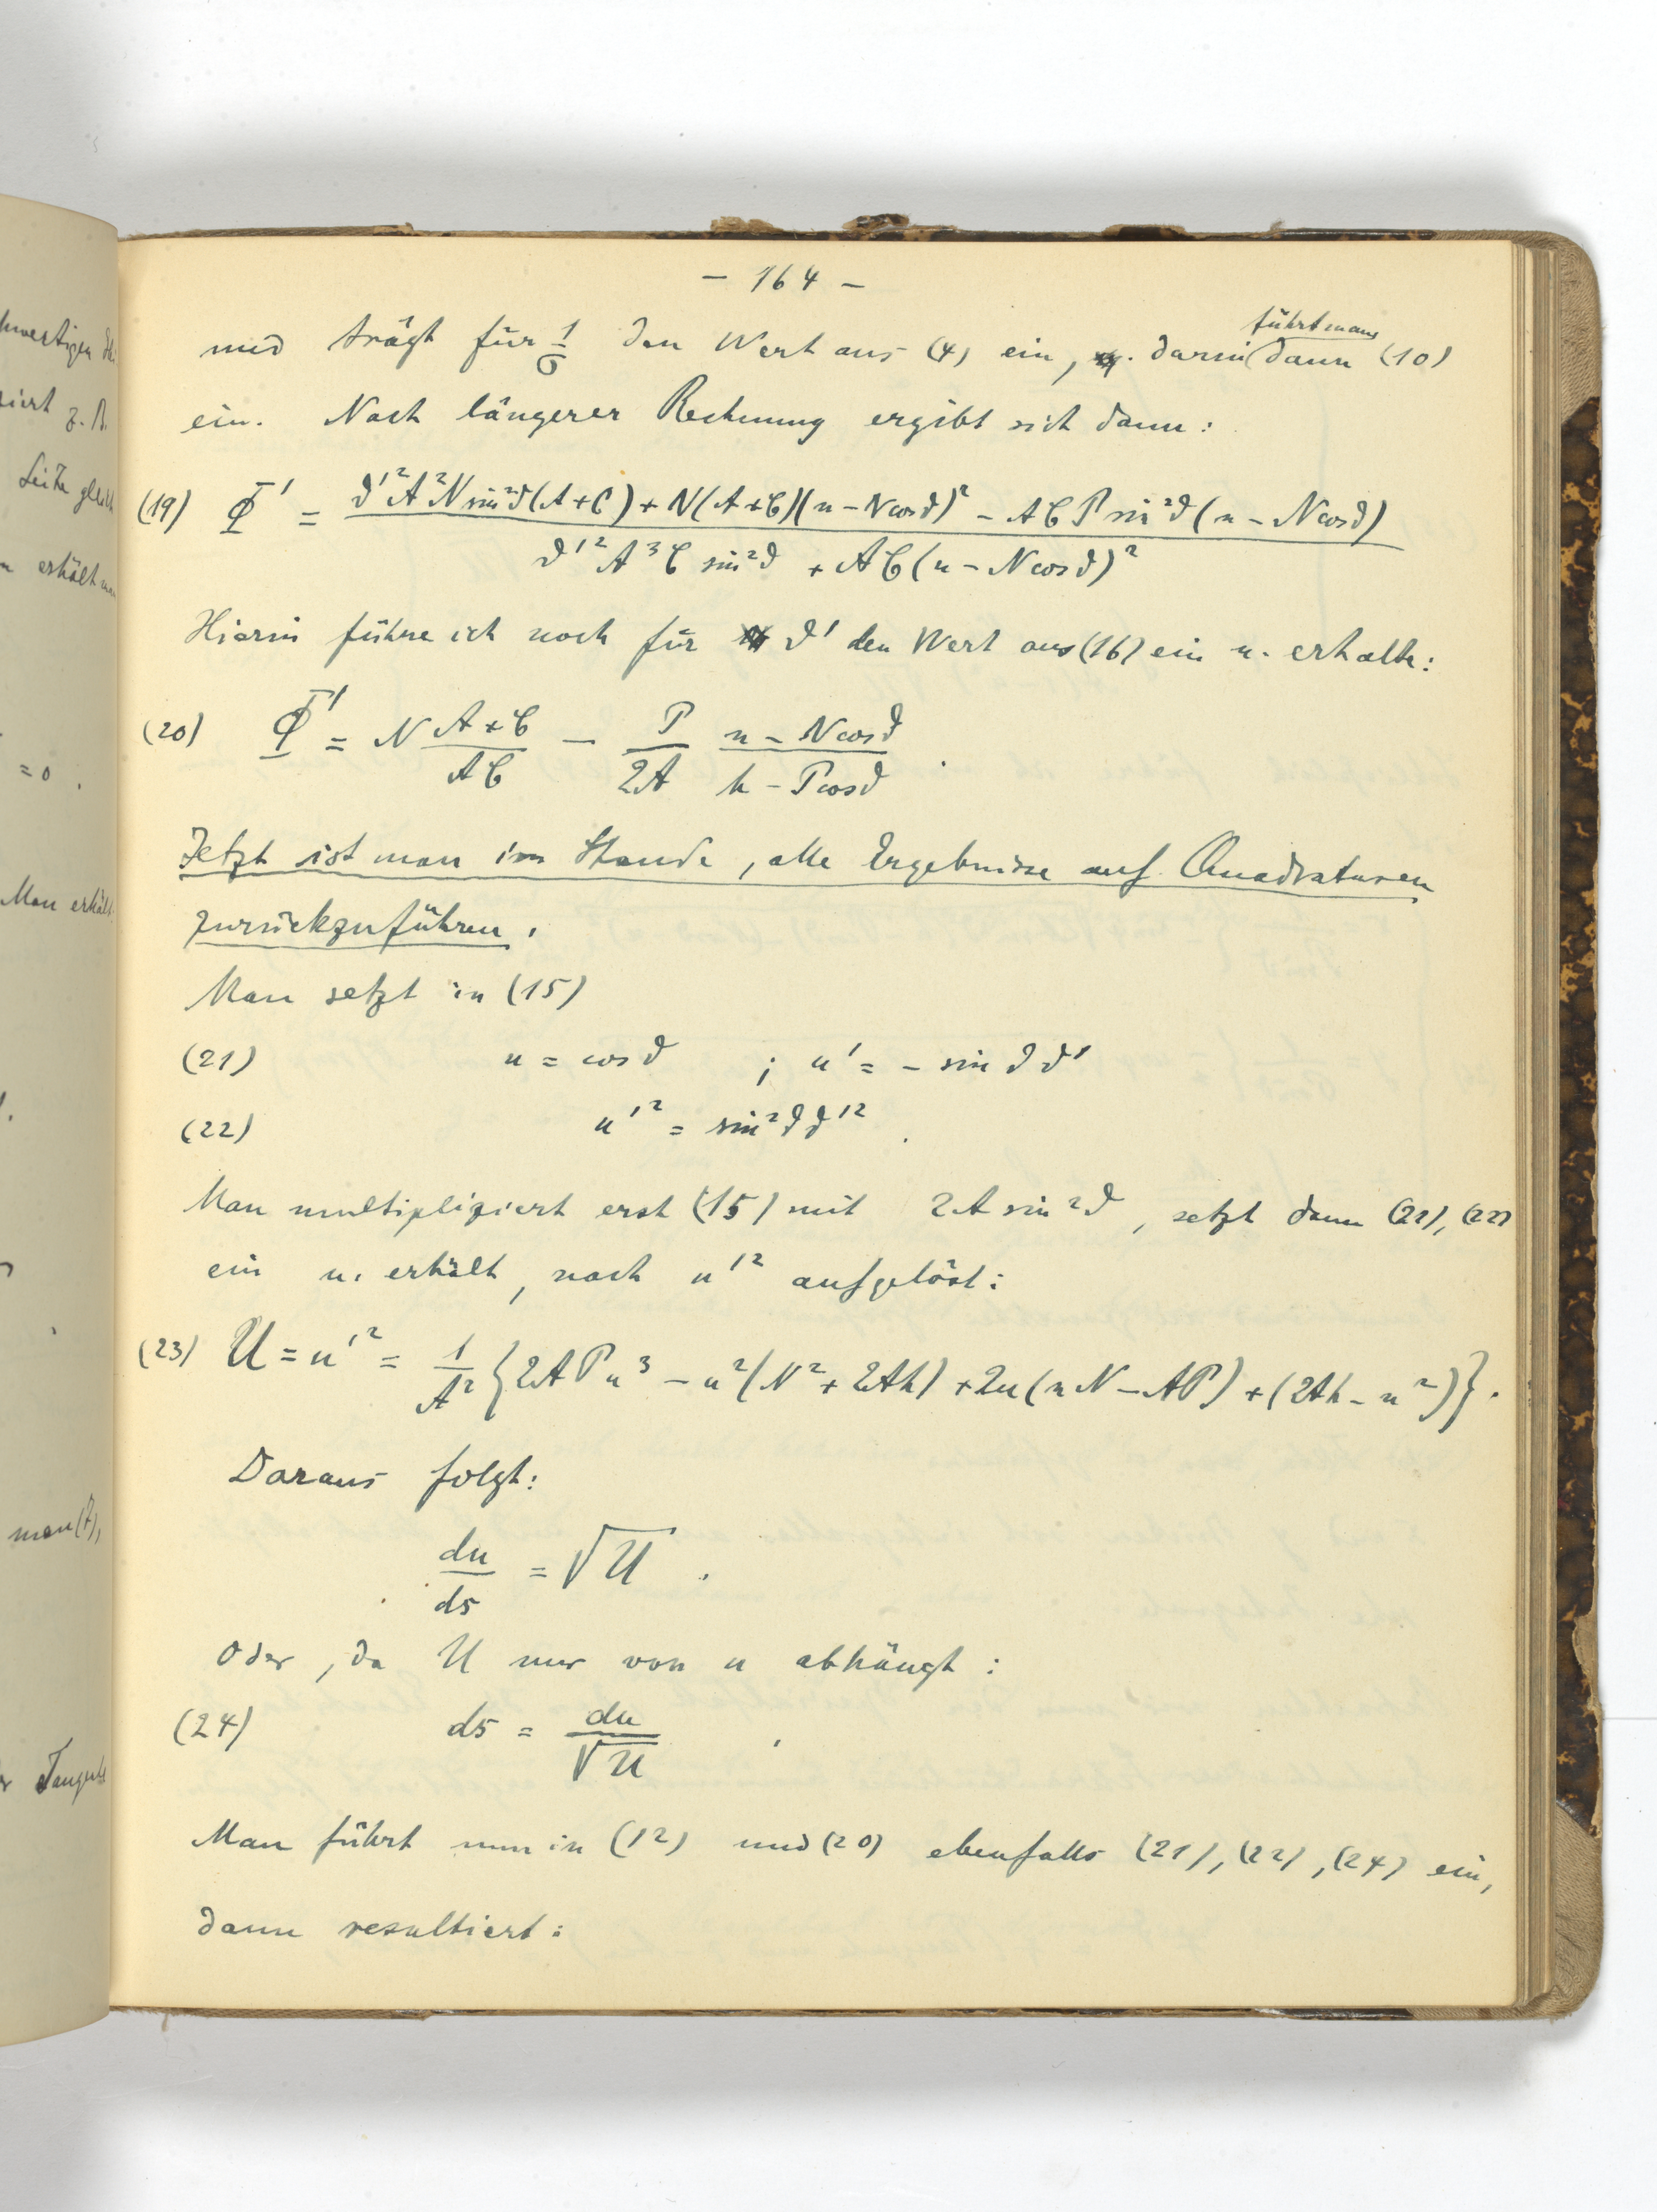 - 164 -
und trägt für 1/σ den Wert aus (4) ein, darin führt man dann (10)
ein. Nach längerer Rechnung ergibt sich dann:
(19) Φ' = (ϑ'²A²N sin²ϑ(A+C) + N(A+C)(n - N cosϑ)² - A C P sin²ϑ (n - N cosϑ)) / (ϑ'²A³C sin²ϑ + AC(n - N cosϑ)²)
Hierin führe ich noch für ϑ' den Wert aus (16) ein u. erhalte:
(20) Φ' = N (A+C)/(AC) - P/(2A) (n - N cosϑ)/(h - P cosϑ) .
Jetzt ist man im Stande, alle Ergebnisse auf Quadraturen
zurückzuführen.
Man setzt in (15)
(21) u = cos ϑ ; u' = - sin ϑ ϑ'
(22) u'² = sin²ϑ ϑ'² .
Man multipliziert erst (15) mit 2A sin²ϑ, setzt dann (21), (22)
ein u. erhält, nach u'² aufgelöst:
(23) U = u'² = 1/A² {2APu³ - u²(N² + 2Ah) + 2u(nN - AP) + (2Ah - n²)}.
Daraus folgt:
du/ds = √U .
Oder, da U nur von u abhängt:
(24) ds = du/√U .
Man führt nun in (12) und (20) ebenfalls (21), (22), (24) ein,
dann resultiert:
z. B.
Seite gleich
= 0 .
Man erhält
man (7),